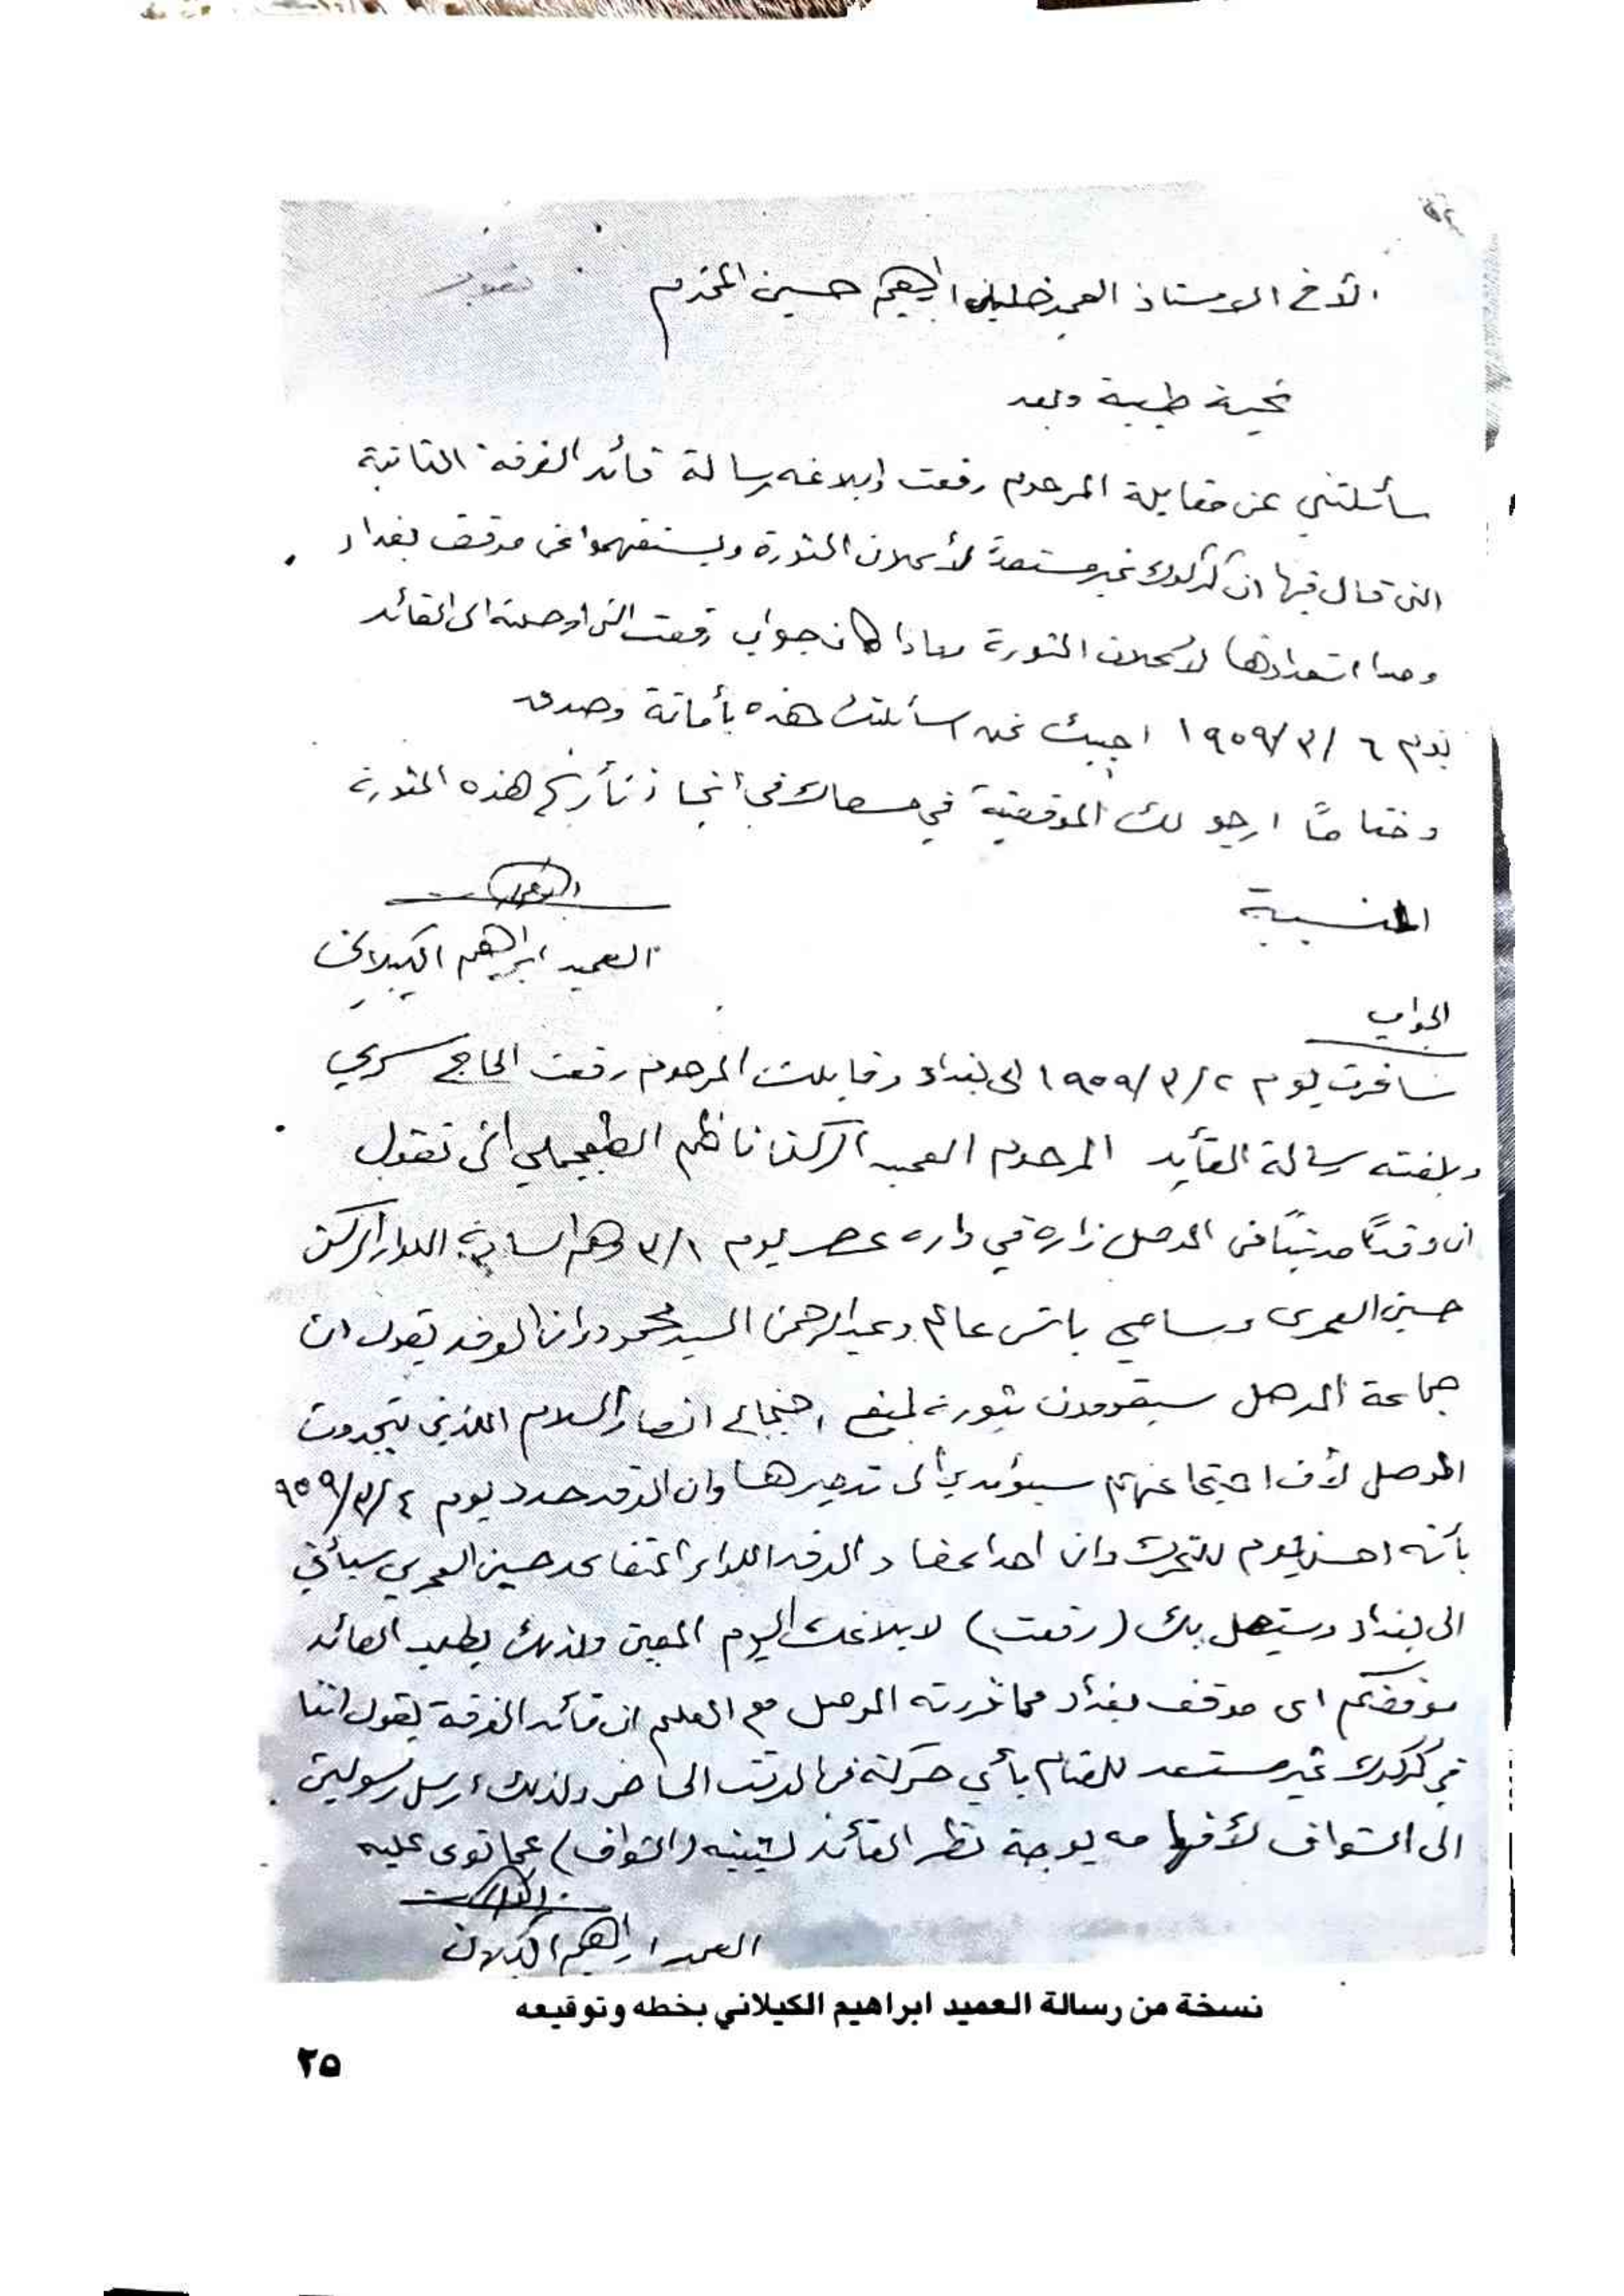 الأخ الاستاذ العميد خليل ابراهيم حسين المحترم
تحية طيبة وبعد
سألتني عن مقابلة المرحوم رفعت وابلاغه رسالة قائد الفرقة الثانية
التي قال فيها ان كركوك غير مستعدة لأعلان الثورة ويستفهموا عن موقف بغداد
ومدا استعدادها لأعلان الثورة وماذا كان جواب رفعت التي اوصلته الى القائد
يوم ٦ /٣/ ١٩٥٩ اجيبك عن اسألتك هذه بأمانة وصدق
وختاماً ارجو لك الموفقية في مسعاك في انجاز تأريخ هذه الثورة
المنسية
العميد ابراهيم الكيلاني
الجواب
سافرت يوم ٢ /٣/ ١٩٥٩ الى بغداد وقابلت المرحوم رفعت الحاج سري
وبلغته رسالة القائد المرحوم العميد الركن ناظم الطبقجلي التي تقول
ان وفداً مدنياً في الموصل زاره في داره عصر يوم ٣/١ وهم السادة اللواء الركن
حسين العمري وسامي باش عالم وعبدالرحمن السيد محمود وان الوفد يقول ان
جماعة الموصل سيقومون بثورة لمنع انصار السلام اللذين يتجمعون
الموصل لأن اجتماعهم سيؤدي الى تدميرها وان الوفد حدد يوم ٤ /٣/ ٩٥٩
بأنه احسن يوم للتحرك وان احد اعضاء الوفد اللواء المتقاعد حسين العمري سيأتي
الى بغداد وسيتصل بك (رفعت) لابلاغك اليوم المعين ولذلك يطلب القائد
موقفكم اى موقف بغداد مما قررته الموصل مع العلم ان قائد الفرقة يقول اننا
في كركوك غير مستعد للقيام بأي حركة في الوقت الحاضر ولذلك ارسل رسولين
الى الشواف لأفهامه بوجهة نظر القائد ليثنيه (الشواف) عما نوى عليه
العميد ابراهيم الكيلاني
نسخة من رسالة العميد ابراهيم الكيلاني بخطه وتوقيعه
٢٥